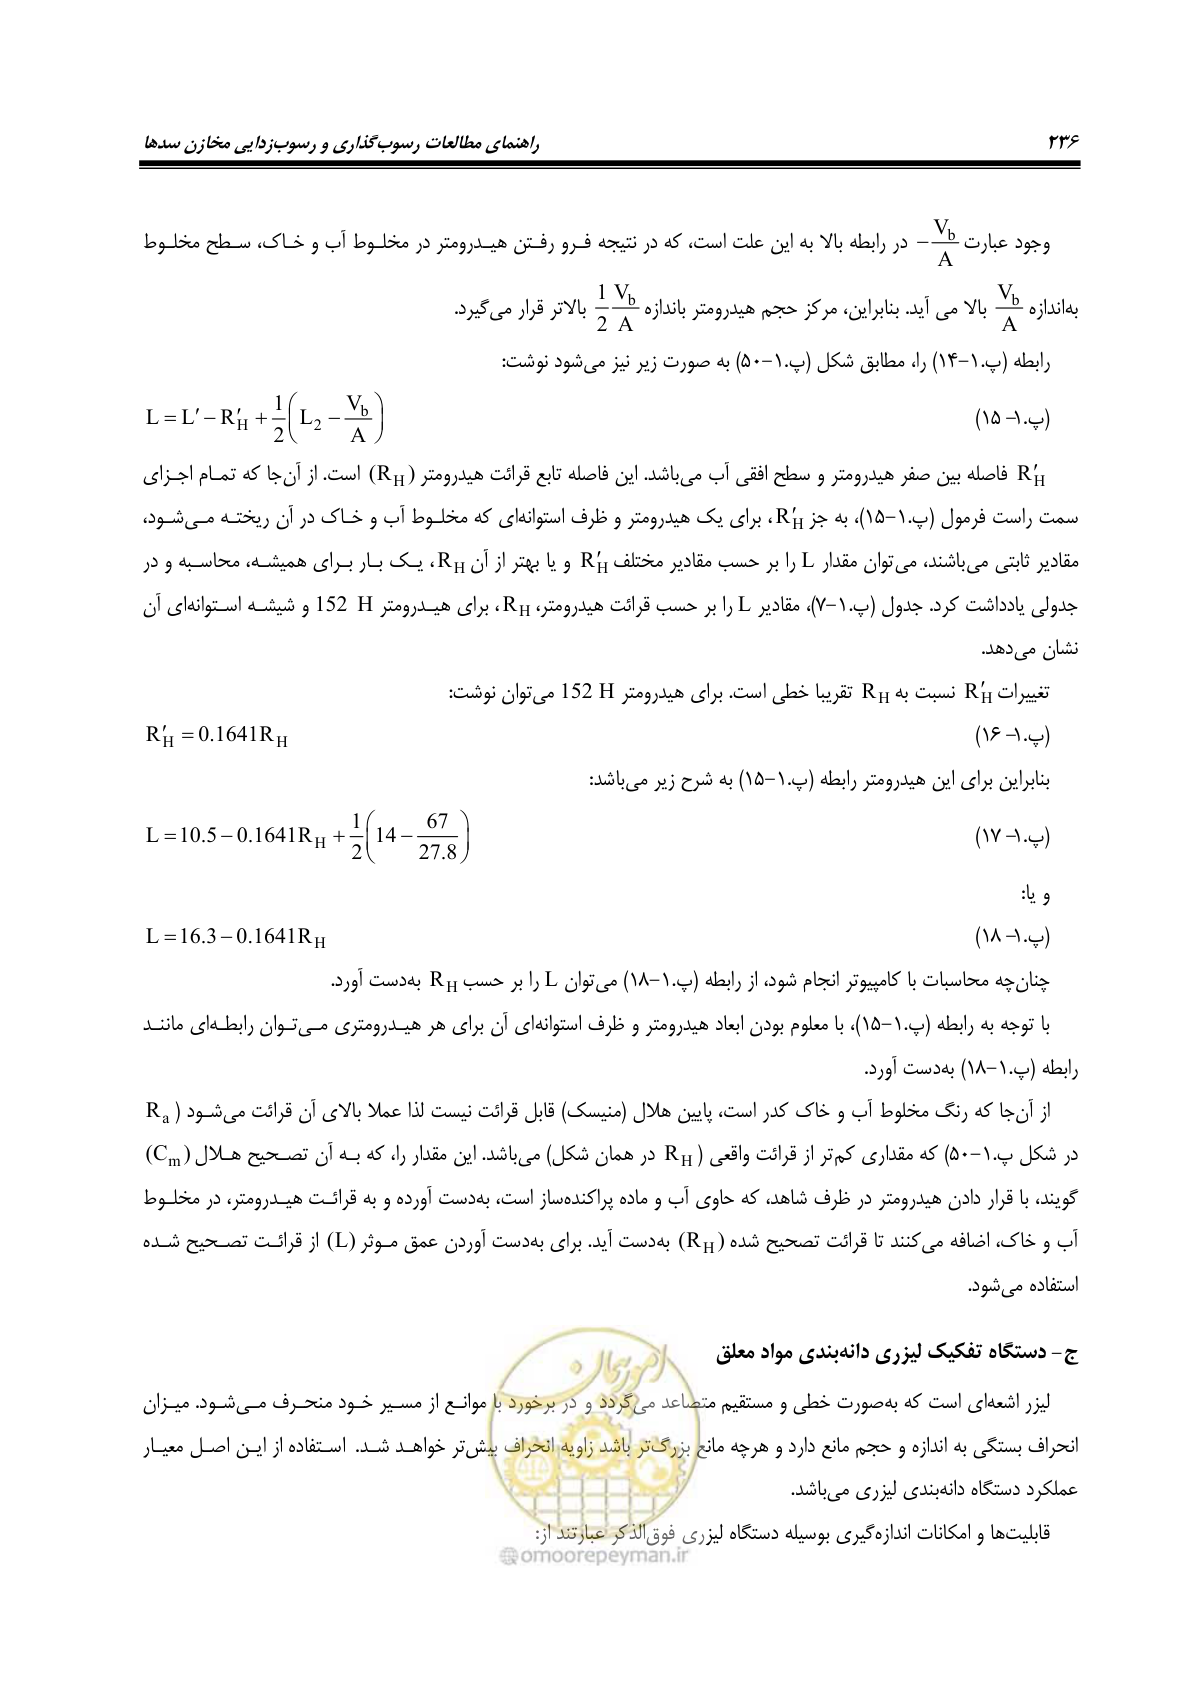 ۲۳۶ راهنمای مطالعات رسوب‌گذاری و رسوب‌زدایی مخازن سدها
وجود عبارت −V_b/A در رابطه بالا به این علت است، که در نتیجه فرو رفتن هیدرومتر در مخلوط آب و خاک، سطح مخلوط
به‌اندازه V_b/A بالا می آید. بنابراین، مرکز حجم هیدرومتر باندازه 1/2 V_b/A بالاتر قرار می‌گیرد.
رابطه (پ.۱-۱۴) را، مطابق شکل (پ.۱-۵۰) به صورت زیر نیز می‌شود نوشت:
(پ.۱-۱۵) L = L′ − R′_H + 1/2 (L_2 − V_b/A)
R′_H فاصله بین صفر هیدرومتر و سطح افقی آب می‌باشد. این فاصله تابع قرائت هیدرومتر (R_H) است. از آن‌جا که تمام اجزای
سمت راست فرمول (پ.۱-۱۵)، به جز R′_H، برای یک هیدرومتر و ظرف استوانه‌ای که مخلوط آب و خاک در آن ریخته می‌شود،
مقادیر ثابتی می‌باشند، می‌توان مقدار L را بر حسب مقادیر مختلف R′_H و یا بهتر از آن R_H، یک بار برای همیشه، محاسبه و در
جدولی یادداشت کرد. جدول (پ.۱-۷)، مقادیر L را بر حسب قرائت هیدرومتر، R_H، برای هیدرومتر 152 H و شیشه استوانه‌ای آن
نشان می‌دهد.
تغییرات R′_H نسبت به R_H تقریبا خطی است. برای هیدرومتر 152 H می‌توان نوشت:
(پ.۱-۱۶) R′_H = 0.1641R_H
بنابراین برای این هیدرومتر رابطه (پ.۱-۱۵) به شرح زیر می‌باشد:
(پ.۱-۱۷) L = 10.5 − 0.1641R_H + 1/2 (14 − 67/27.8)
و یا:
(پ.۱-۱۸) L = 16.3 − 0.1641R_H
چنان‌چه محاسبات با کامپیوتر انجام شود، از رابطه (پ.۱-۱۸) می‌توان L را بر حسب R_H به‌دست آورد.
با توجه به رابطه (پ.۱-۱۵)، با معلوم بودن ابعاد هیدرومتر و ظرف استوانه‌ای آن برای هر هیدرومتری می‌توان رابطه‌ای مانند
رابطه (پ.۱-۱۸) به‌دست آورد.
از آن‌جا که رنگ مخلوط آب و خاک کدر است، پایین هلال (منیسک) قابل قرائت نیست لذا عملا بالای آن قرائت می‌شود (R_a
در شکل پ.۱-۵۰) که مقداری کم‌تر از قرائت واقعی (R_H در همان شکل) می‌باشد. این مقدار را، که به آن تصحیح هلال (C_m)
گویند، با قرار دادن هیدرومتر در ظرف شاهد، که حاوی آب و ماده پراکنده‌ساز است، به‌دست آورده و به قرائت هیدرومتر، در مخلوط
آب و خاک، اضافه می‌کنند تا قرائت تصحیح شده (R_H) به‌دست آید. برای به‌دست آوردن عمق موثر (L) از قرائت تصحیح شده
استفاده می‌شود.
ج- دستگاه تفکیک لیزری دانه‌بندی مواد معلق
لیزر اشعه‌ای است که به‌صورت خطی و مستقیم متصاعد می‌گردد و در برخورد با موانع از مسیر خود منحرف می‌شود. میزان
انحراف بستگی به اندازه و حجم مانع دارد و هرچه مانع بزرگ‌تر باشد زاویه انحراف بیش‌تر خواهد شد. استفاده از این اصل معیار
عملکرد دستگاه دانه‌بندی لیزری می‌باشد.
قابلیت‌ها و امکانات اندازه‌گیری بوسیله دستگاه لیزری فوق‌الذکر عبارتند از:
امور پیمان
@omoorepeyman.ir